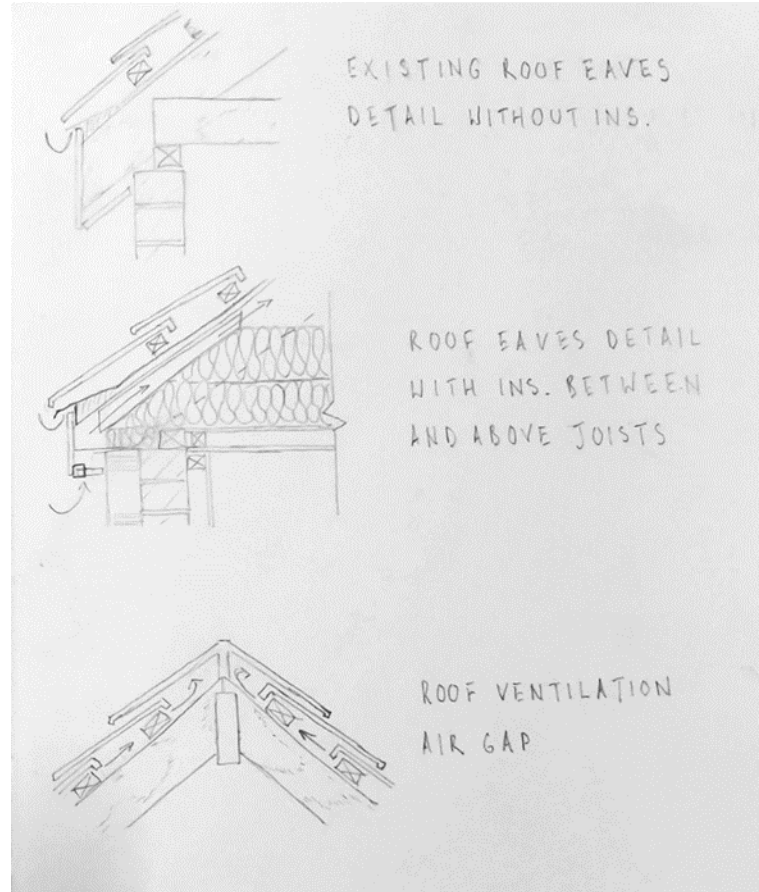 EXISTING ROOF EAVES
DETAIL WITHOUT INS.
ROOF EAVES DETAIL
WITH INS. BETWEEN
AND ABOVE JOISTS
ROOF VENTILATION
AIR GAP